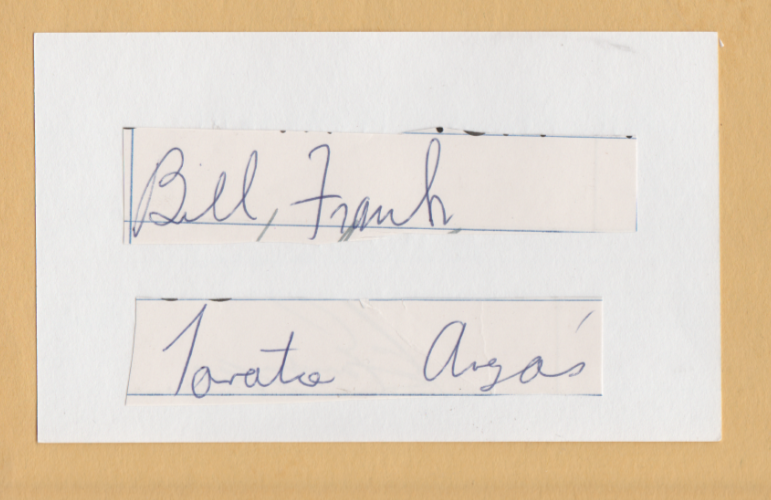 Bill, Frank
Toronto Argos'